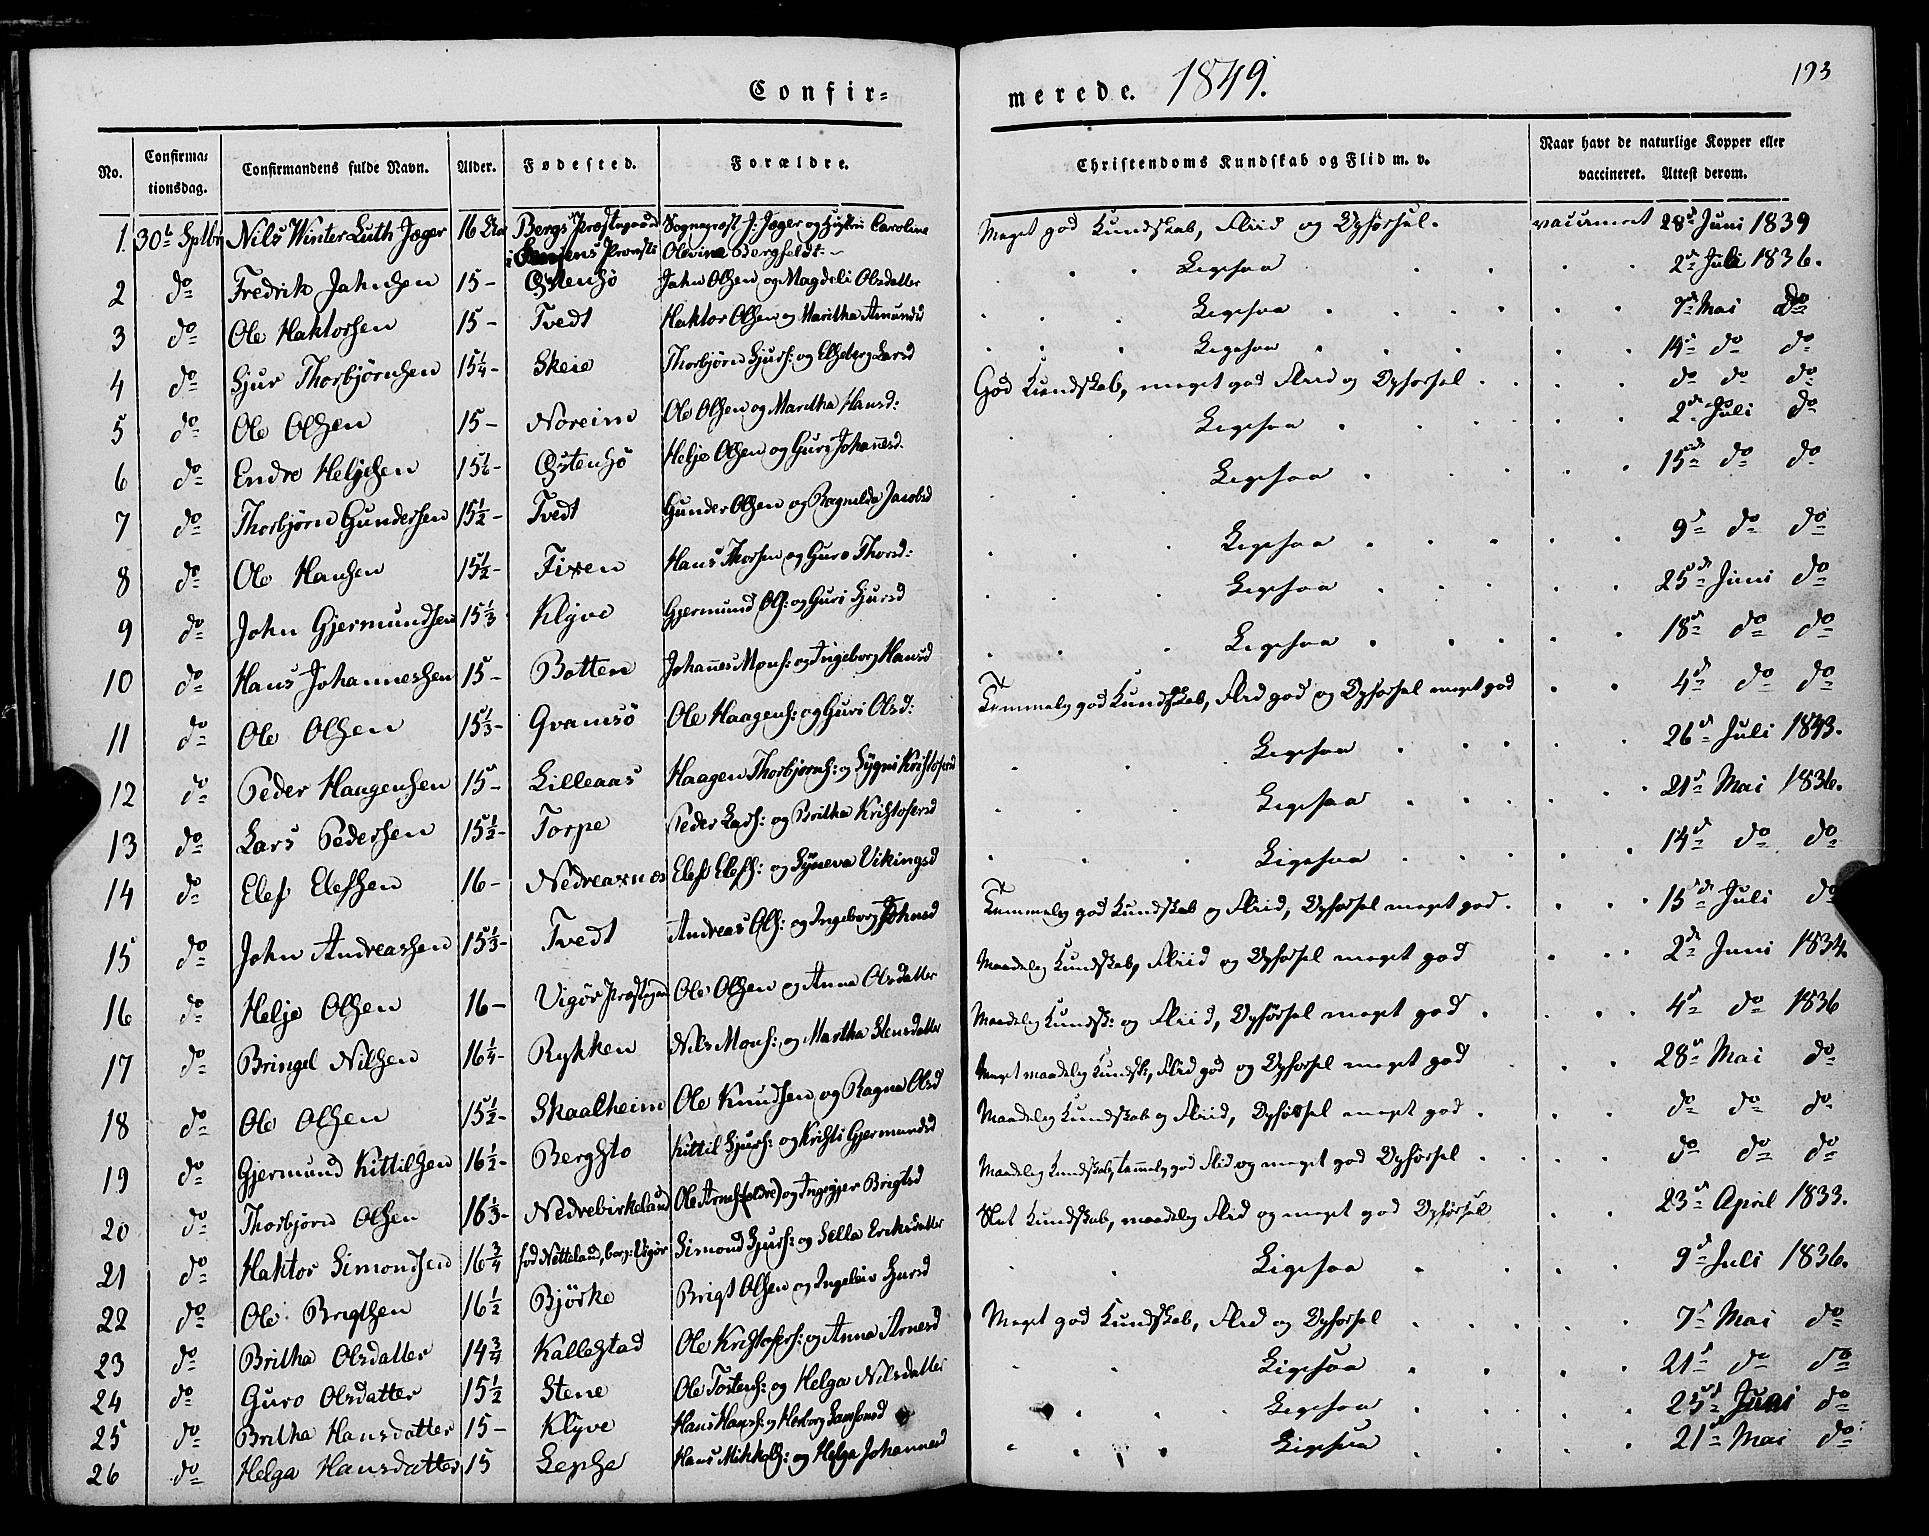 Confir-
merede. 1849.
193
No. | Confirma-tionsdag. | Confirmandens fulde Navn. | Alder. | Fødested. | Forældre. | Christendoms Kundskab og Flid m. v. | Naar havt de naturlige Kopper eller vaccineret. Attest derom.
1. | 30te Sptbr | Nils Winter Luth Jæger | 16 | Bergs Præstegaard | Sogneprest J: Jæger og Hustru Caroline | Meget god Kundskab, Fliid og Opførsel. | vaccineret 28d Juni 1839
Olevine Bergfeldt:
2 | do | Fredrik Jahnsen | 15- | Østensø | Jahn Olsen og Magdeli Olsdatter | Ligesaa | 2d Juli 1836.
3 | do | Ole Haktorsen | 15- | Tvedt | Haktor Olsen og Maritha Amunds | Ligesaa | 7d Mai do
4 | do | Sjur Thorbjørnsen | 15¼- | Skeie | Thorbjørn Sjurs: og Elsebeg Larsd | Ligesaa | 14d do do
5 | do | Ole Olsen | 15- | Noreim | Ole Olsen og Maritha Hansd: | God Kundskab, meget god Fliid og Opførsel | do do do
6 | do | Endre Heljesen | 15- | Østensø | Helje Olsen og Guri Johannesd. | Ligesaa | 2d Juli do
7 | do | Thorbjørn Gundersen | 15½- | Tvedt | Gunder Olsen og Ragnilda Jacobsd | Ligesaa | 15d do do
8 | do | Ole Hansen | 15½- | Fixen | Hans Thorsen og Guro Thorsd: | Ligesaa | 9d do do
9 | do | John Gjermundsen | 15⅓ | Klyve | Gjermund Ols: og Guri Sjursd | Ligesaa | 25d Juni do
10 | do | Hans Johannessen | 15- | Botten | Johannes Mons: og Ingeborg Hansd | Ligesaa | 18d do do
11 | do | Ole Olsen | 15⅓- | Qvamsø | Ole Haagens: og Guri Olsd: | Temmelig god Kundskab, Flid god og Opførsel meget god | 4d do do
12 | do | Peder Haugensen | 15- | Lilleaas | Haagen Thorbjørns: og Sygni Kristofersd | Ligesaa | 26d Juli 1843.
13 | do | Lars Pedersen | 15½- | Torpe | Peder Lars: og Britha Kristofersd | Ligesaa | 21d Mai 1836.
14 | do | Elef Elefsen | 16- | Nedreaxnes | Elef Elefs: og Syneva Vikingsd | Ligesaa | 14d do do
15 | do | John Andreassen | 15⅓- | Tvedt | Andreas Ols: og Ingeborg Johnsd | Temmelig god Kundskab og Fliid, Opførsel meget god. | 15d Juli do
16 | do | Helje Olsen | 16- | Vigør Præstegj | Ole Olsen og Anna Olsdatter | Maadelig Kundskab, Fliid og Opførsel meget god | 2d Juni 1834.
17 | do | Bringel Nilsen | 16¼- | Rykken | Nils Mons: og Martha Stensdatter | Maadelig Kundsk: og Fliid, Opførsel meget god | 4d do 1836
18 | do | Ole Olsen | 15½- | Skaalheim | Ole Knudsen og Ragna Olsd | Meget maadelig Kundsk, Flid god og Opførsel meget god | 28d Mai do
19 | do | Gjermund Kittilsen | 16½- | Bergsto | Kittil Sjurs: og Kristi Gjermundsd | Maadelig Kundskab og Fliid, Opførsel meget god | do do do
20 | do | Thorbjørn Olsen | 16⅓- | Nedrebirkeland | Ole Arnes: (ældre) og Ingegjer Brigtsd | Maadelig Kundskab, temmelig god Flid og meget god Opførsel | do do do
21 | do | Haktor Simondsen | 16¾ | fød Netteland, Vigør | Simond Sjurs: og Sella Eriksdatter | Slet Kundskab, maadelig Flid og meget god Opførsel | 23d April 1833.
22 | do | Ole Brigtsen | 16½ | Bjørke | Brigt Olsen og Ingeleiv Sjursd | Ligesaa | 9d Juli 1836.
23 | do | Britha Olsdatter | 14¾ | Kallestad | Ole Kristofers: og Anna Arnesd | Meget god Kundskab, Flid og Opførsel | 7d Mai do
24 | do | Guro Olsdatter | 15½ | Stene | Ole Tostens: og Helga Nilsdatter | Ligesaa | 21d do do
25 | do | Britha Hansdatter | 15- | Klyve | Hans Hans: og Herborg Samsonsd | Ligesaa | 25d Juni do
26 | do | Helga Hansdatter | 15 | Sepse | Hans Mikkels: og Helga Johannesd | Ligesaa | 21d Mai do